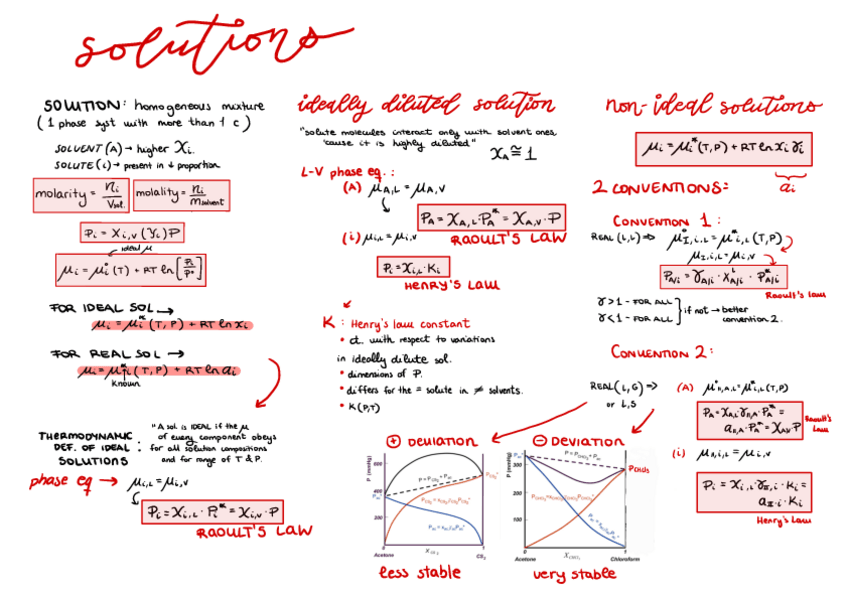 solutions
SOLUTION: homogeneous mixture
(1 phase syst with more than 1 c)
SOLVENT (A) → higher Xi.
SOLUTE (i) → present in ↓ proportion
molarity = ni / Vsol.
molality = ni / msolvent
Pi = Xi,v (γi) P
ideal μ
μi = μi°(T) + RT ln [Pi / P°]
FOR IDEAL SOL →
μi = μi*(T, P) + RT ln xi
FOR REAL SOL →
μi = μi*(T, P) + RT ln ai
known
THERMODYNAMIC
DEF. OF IDEAL :
SOLUTIONS
"A sol is IDEAL if the μ
of every component obeys
for all solution compositions
and for range of T & P.
phase eq → μi,L = μi,v
Pi = Xi,L · Pi* = Xi,v · P
RAOULT'S LAW
ideally diluted solution
"solute molecules interact only with solvent ones,
'cause it is highly diluted"
XA ≅ 1
L-V phase eq.:
(A) μA,L = μA,v
PA = XA,L · PA* = XA,v · P
RAOULT'S LAW
(i) μi,L = μi,v
Pi = Xi,L · Ki
HENRY'S LAW
K : Henry's law constant
• ct. with respect to variations
in ideally dilute sol.
• dimensions of P.
• differs for the = solute in ≠ solvents.
• K(P,T)
⊕ DEVIATION
P (mmHg)
600
400
200
0
Acetone
CS2
1
less stable
⊖ DEVIATION
P (mmHg)
300
200
100
0
PCHCl3
Acetone
XCHCl3
1
Chloroform
very stable
non-ideal solutions
μi = μi*(T, P) + RT ln xi γi
ai
2 CONVENTIONS:
CONVENTION 1:
REAL (L,L) ⇒ μ°I,i,L = μ*i,L (T,P)
μI,i,L = μi,v
PA/i = γA/i · xA/i · P*A/i
Raoult's law
γ > 1 - FOR ALL
γ < 1 - FOR ALL
if not → better
convention 2.
CONVENTION 2:
REAL (L,G) ⇒
or L,S
(A) μ°II,A,L = μ*i,L (T,P)
PA = XA,L · γII,A · PA* =
aII,A · PA* = XA,v · P
Raoult's
Law
(i) μII,i,L = μi,v
Pi = Xi,L · γII,i · Ki =
aII,i · Ki
Henry's Law